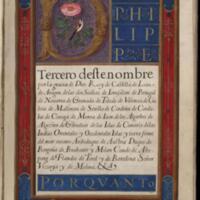 D
PHILIPPE
Tercero deste nombre
por la gracia de Dios Rey de Castilla de Leon
de Aragon de las dos Sicilias de Jerusalem de Portugal
de Navarra de Granada de Toledo de Valencia de Galicia
de Mallorcas de Sevilla de Cerdeña de Cordova
de Corcega de Murcia de Jaen de los Algarves de
Algecira de Gibraltar de las Islas de Canaria de las
Indias Orientales y Occidentales Islas y tierra firme
del mar oceano Archiduque de Austria Duque de
Borgoña de Brabante y Milan Conde de Abs
purg de Flandes de Tirol y de Barcelona Señor
de Vizcaya y de Molina
PORQUANTO